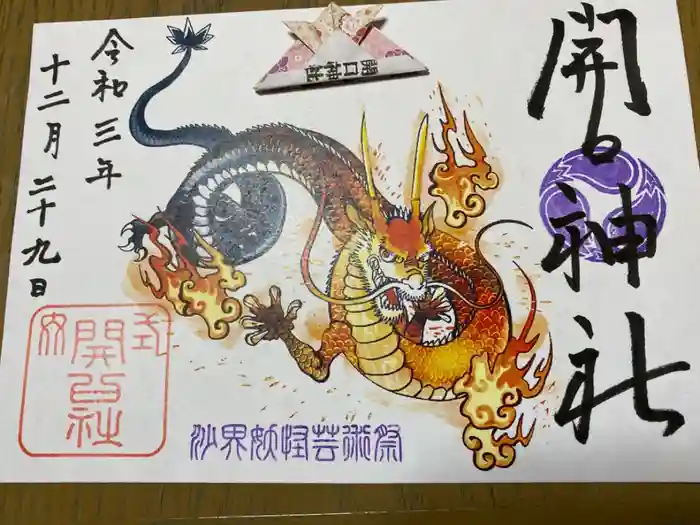 開口神社
令和三年
十二月二十九日
開口神社
沙界妖怪芸術祭
式内
開口社